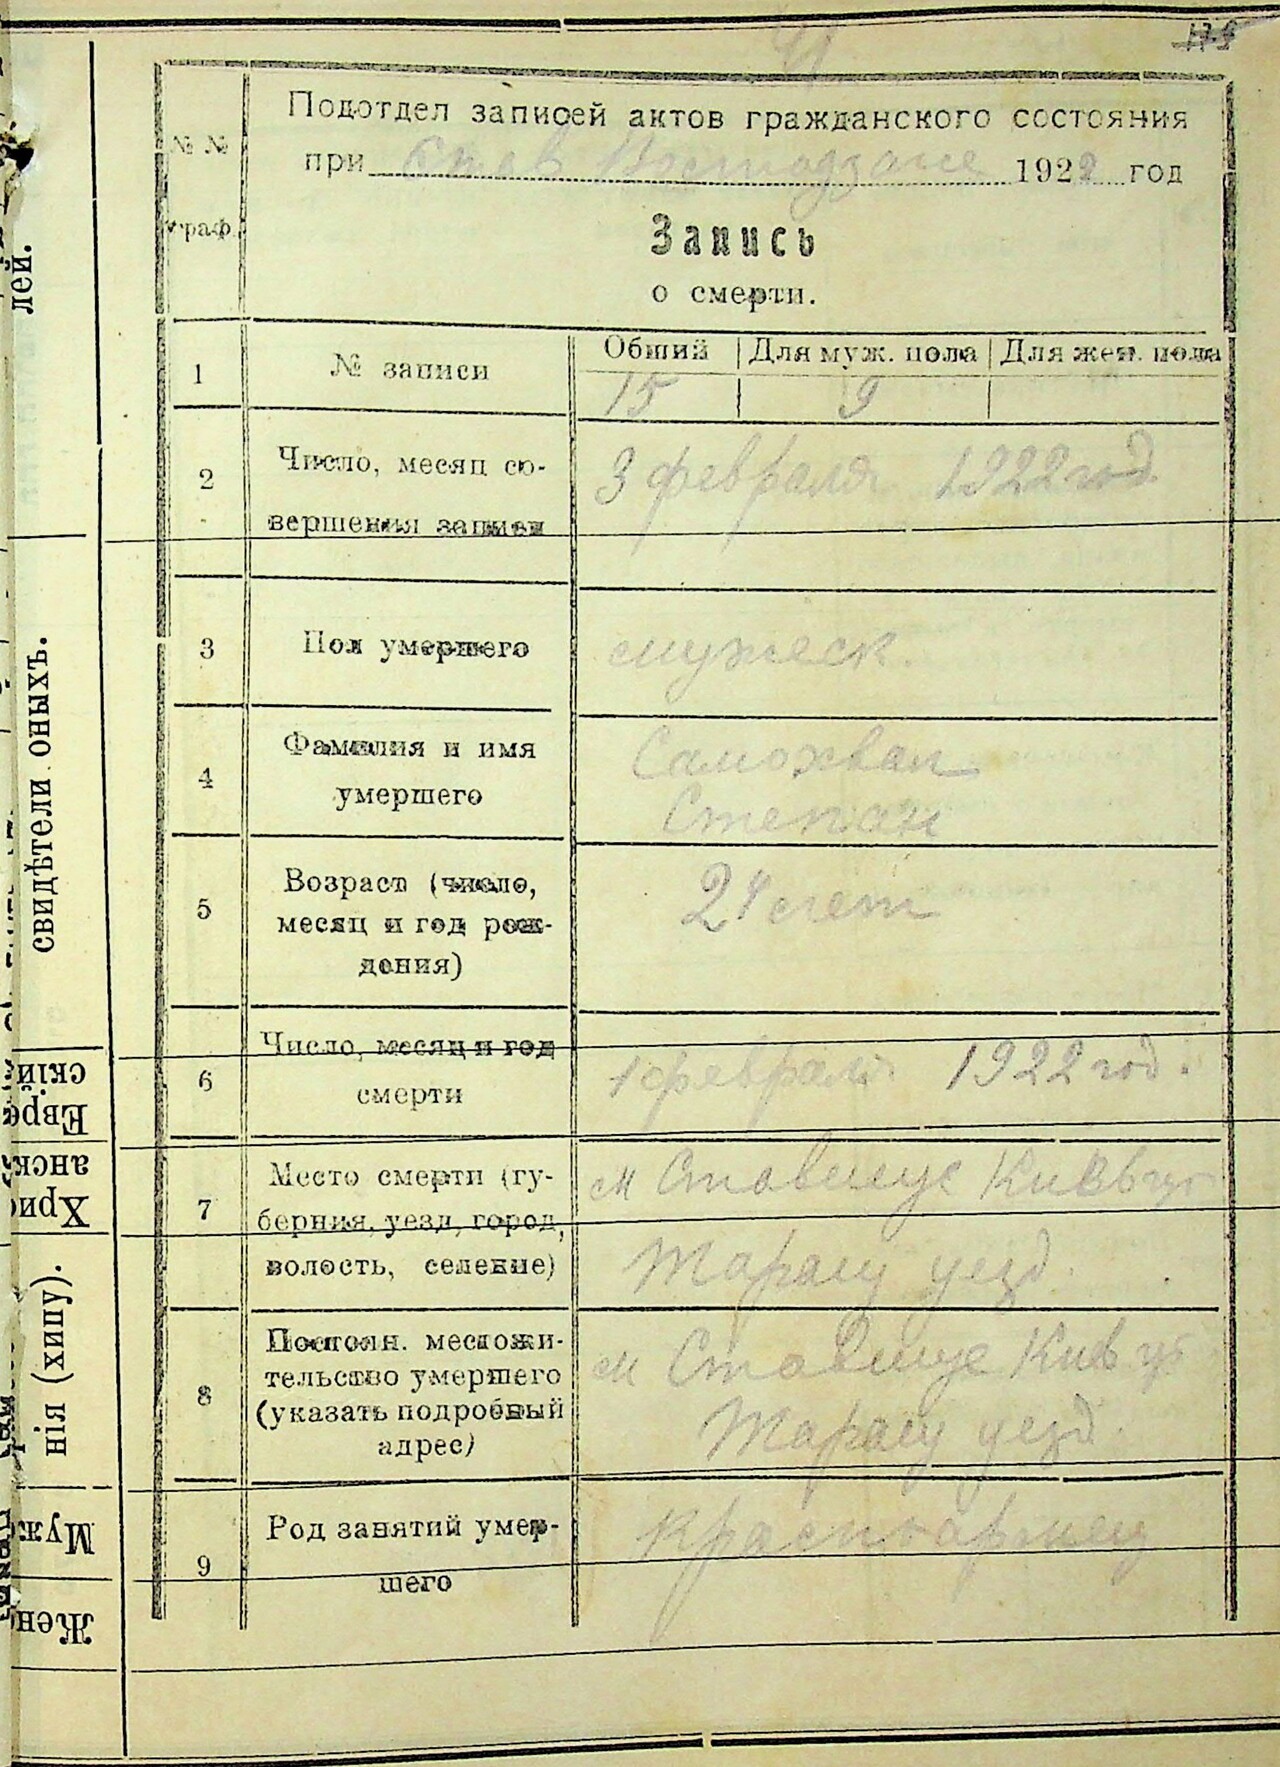 Подотдел записей актов гражданского состояния
при Став 1922 год
№ №
граф.
Запись
о смерти.
1 № записи Общий Для муж. пола Для жен. пола
15 9
2 Число, месяц со-
вершения записи
3 февраля 1922 год.
3 Пол умершего мужеск.
4 Фамилия и имя
умершего
Самохвал
Степан
5 Возраст (число,
месяц и год рож-
дения)
24 лет
6 Число, месяц и год
смерти
1 февраля 1922 год.
7 Место смерти (гу-
берния, уезд, город,
волость, селение)
м Ставище Киев губ
Таращ уезд.
8 Постоян. местожи-
тельство умершего
(указать подробный
адрес)
м Ставище Киев губ
Таращ уезд.
9 Род занятий умер-
шего
красноармеец
лей.
свидѣтели оныхъ.
Евре
скій
Хрис
анск
нія (хипу).
Муж
Жен